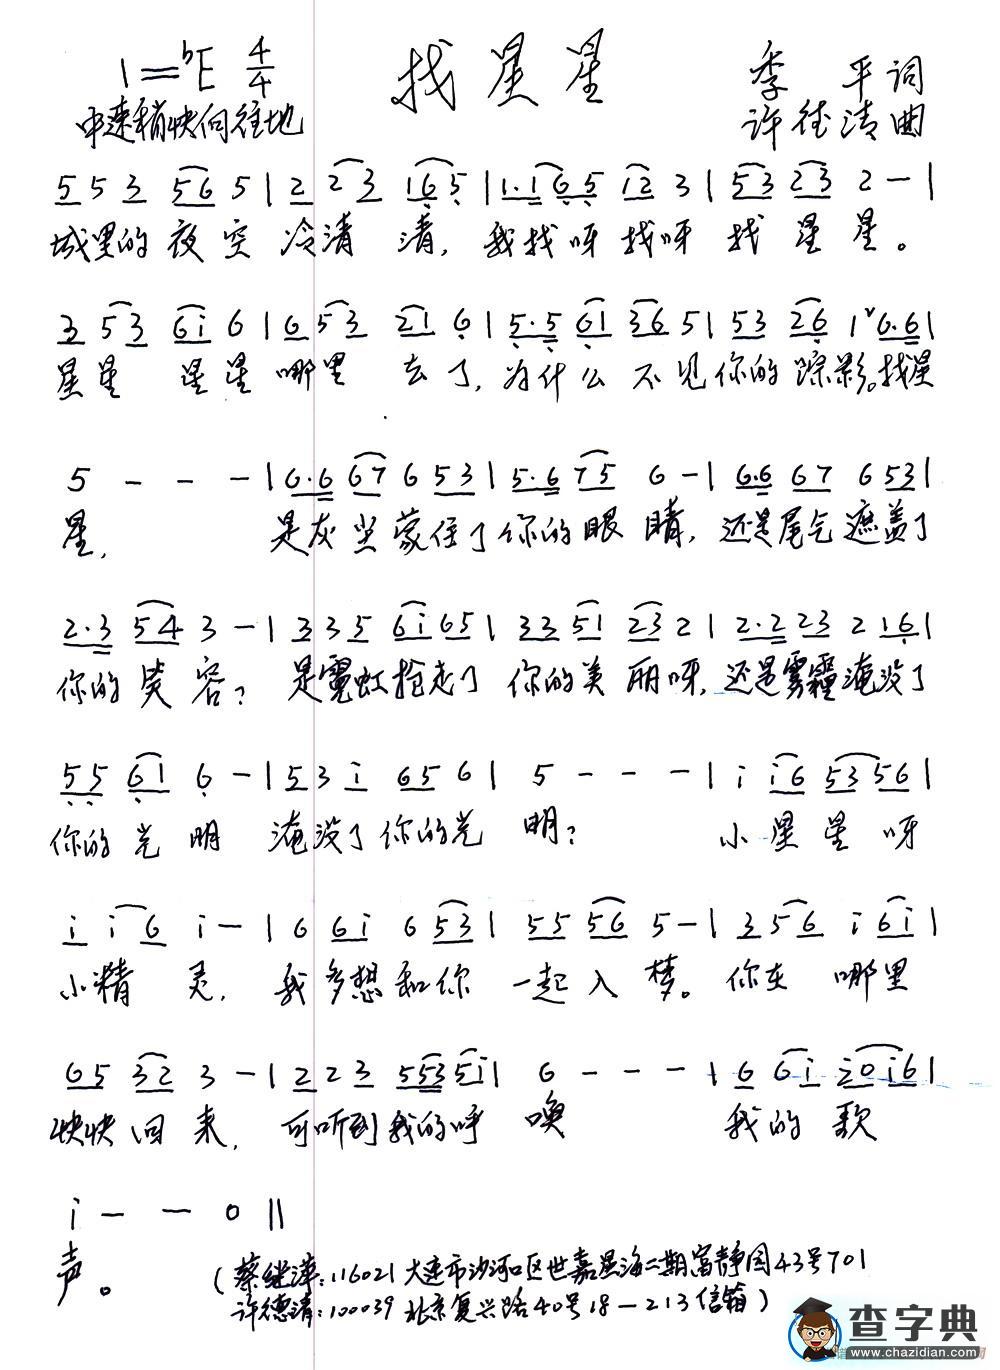 1=♭E 4/4 找星星 季 平词
中速稍快向往地 许德清曲
5 5 3 56 5 | 2 2 3 1 6 5 | 1·1 6 5 1 2 3 | 53 23 2 - |
城里的夜空冷清 清，我找呀找呀找 星 星。
3 5 3 6 i 6 | 6 5 3 2 1 6 | 5·5 6 1 3 6 5 | 5 3 2 6 1 ˅ 6·6 |
星星 星星 哪里 去了，为什么 不见你的踪影。找星
5 - - - | 6·6 6 7 6 5 3 | 5·6 7 5 6 - | 6·6 6 7 6 5 3 |
星， 是灰尘蒙住了你的眼 睛，还是尾气遮盖了
2·3 5 4 3 - | 3 3 5 6 i 6 5 | 3 3 5 1 2 3 2 | 2·2 2 3 2 1 6 |
你的笑 容？ 是霓虹抢走了 你的美 丽呀，还是雾霾淹没了
5 5 6 1 6 - | 5 3 i 6 5 6 | 5 - - - | i i 6 5 3 5 6 |
你的光 明 淹没了你的光 明？ 小星星呀
i i 6 i - | 6 6 i 6 5 3 | 5 5 5 6 5 - | 3 5 6 i 6 i |
小精 灵，我多想和你 一起入 梦。 你在 哪里
6 5 3 2 3 - | 2 2 3 5 5 3 5 i | 6 - - - | 6 6 i 2 0 i 6 |
快快回 来， 可听到我的呼 唤 我的 歌
i - - 0 ‖
声。 （蔡继萍：116021 大连市沙河口区世嘉星海二期富静园43号701
许德清：100039 北京复兴路40号18-213信箱）
查字典
www.chazidian.com